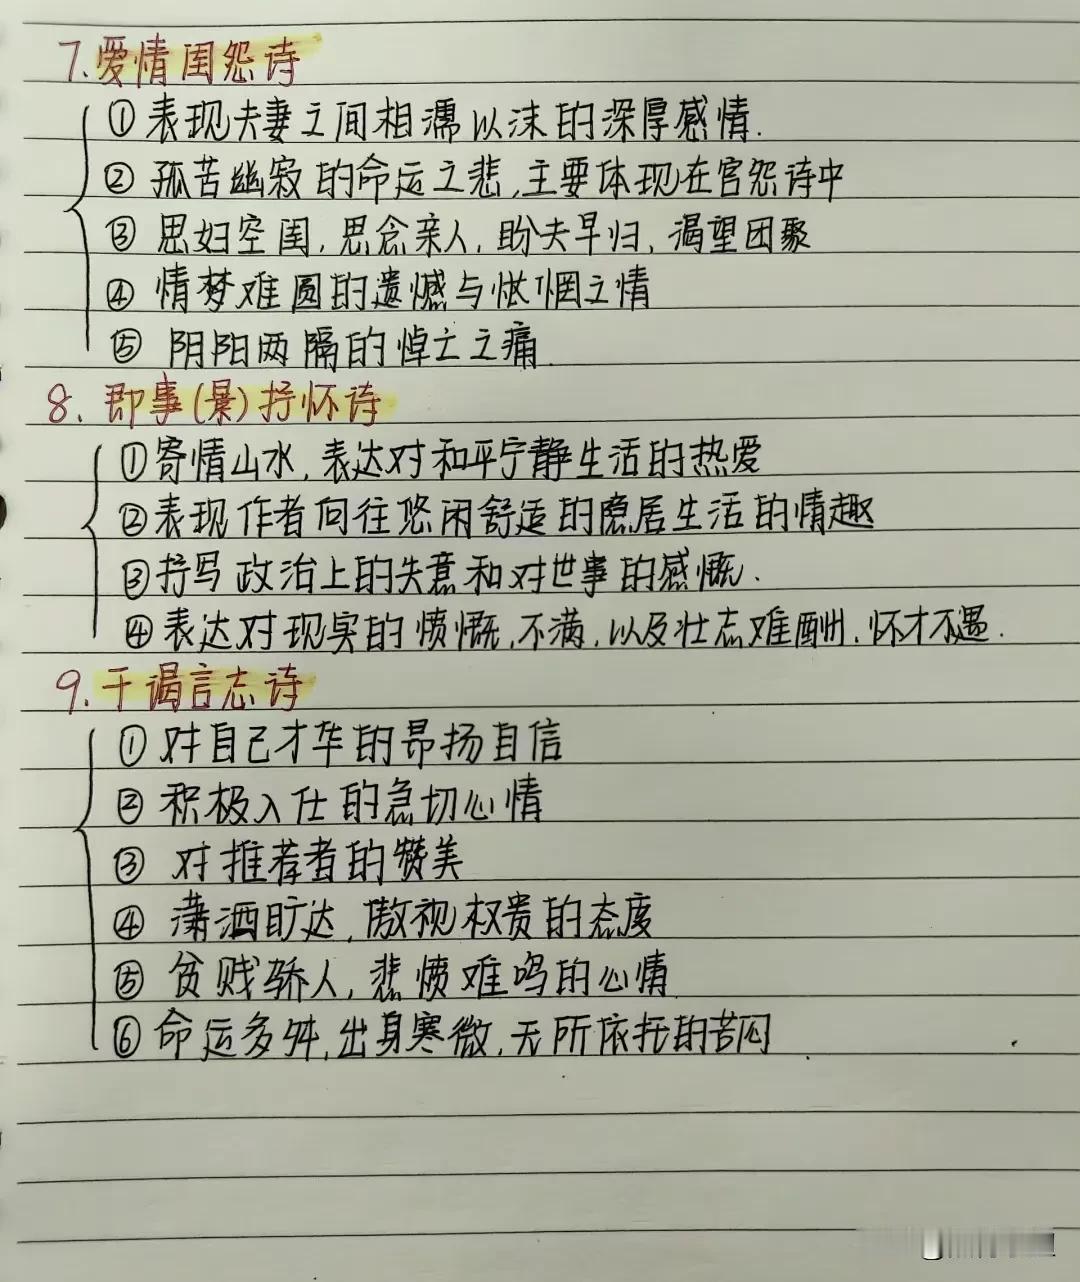 7.爱情闺怨诗
①表现夫妻之间相濡以沫的深厚感情.
②孤苦幽寂的命运之悲,主要体现在宫怨诗中
③思妇空闺,思念亲人,盼夫早归,渴望团聚
④情梦难圆的遗憾与怅惘之情
⑤阴阳两隔的悼亡之痛.
8.即事(景)抒怀诗
①寄情山水,表达对和平宁静生活的热爱
②表现作者向往悠闲舒适的隐居生活的情趣
③抒写政治上的失意和对世事的感慨.
④表达对现实的愤慨,不满,以及壮志难酬,怀才不遇.
9.干谒言志诗
①对自己才华的昂扬自信
②积极入仕的急切心情
③对推荐者的赞美
④潇洒旷达,傲视权贵的态度
⑤贫贱骄人,悲愤难鸣的心情
⑥命运多舛,出身寒微,无所依托的苦闷